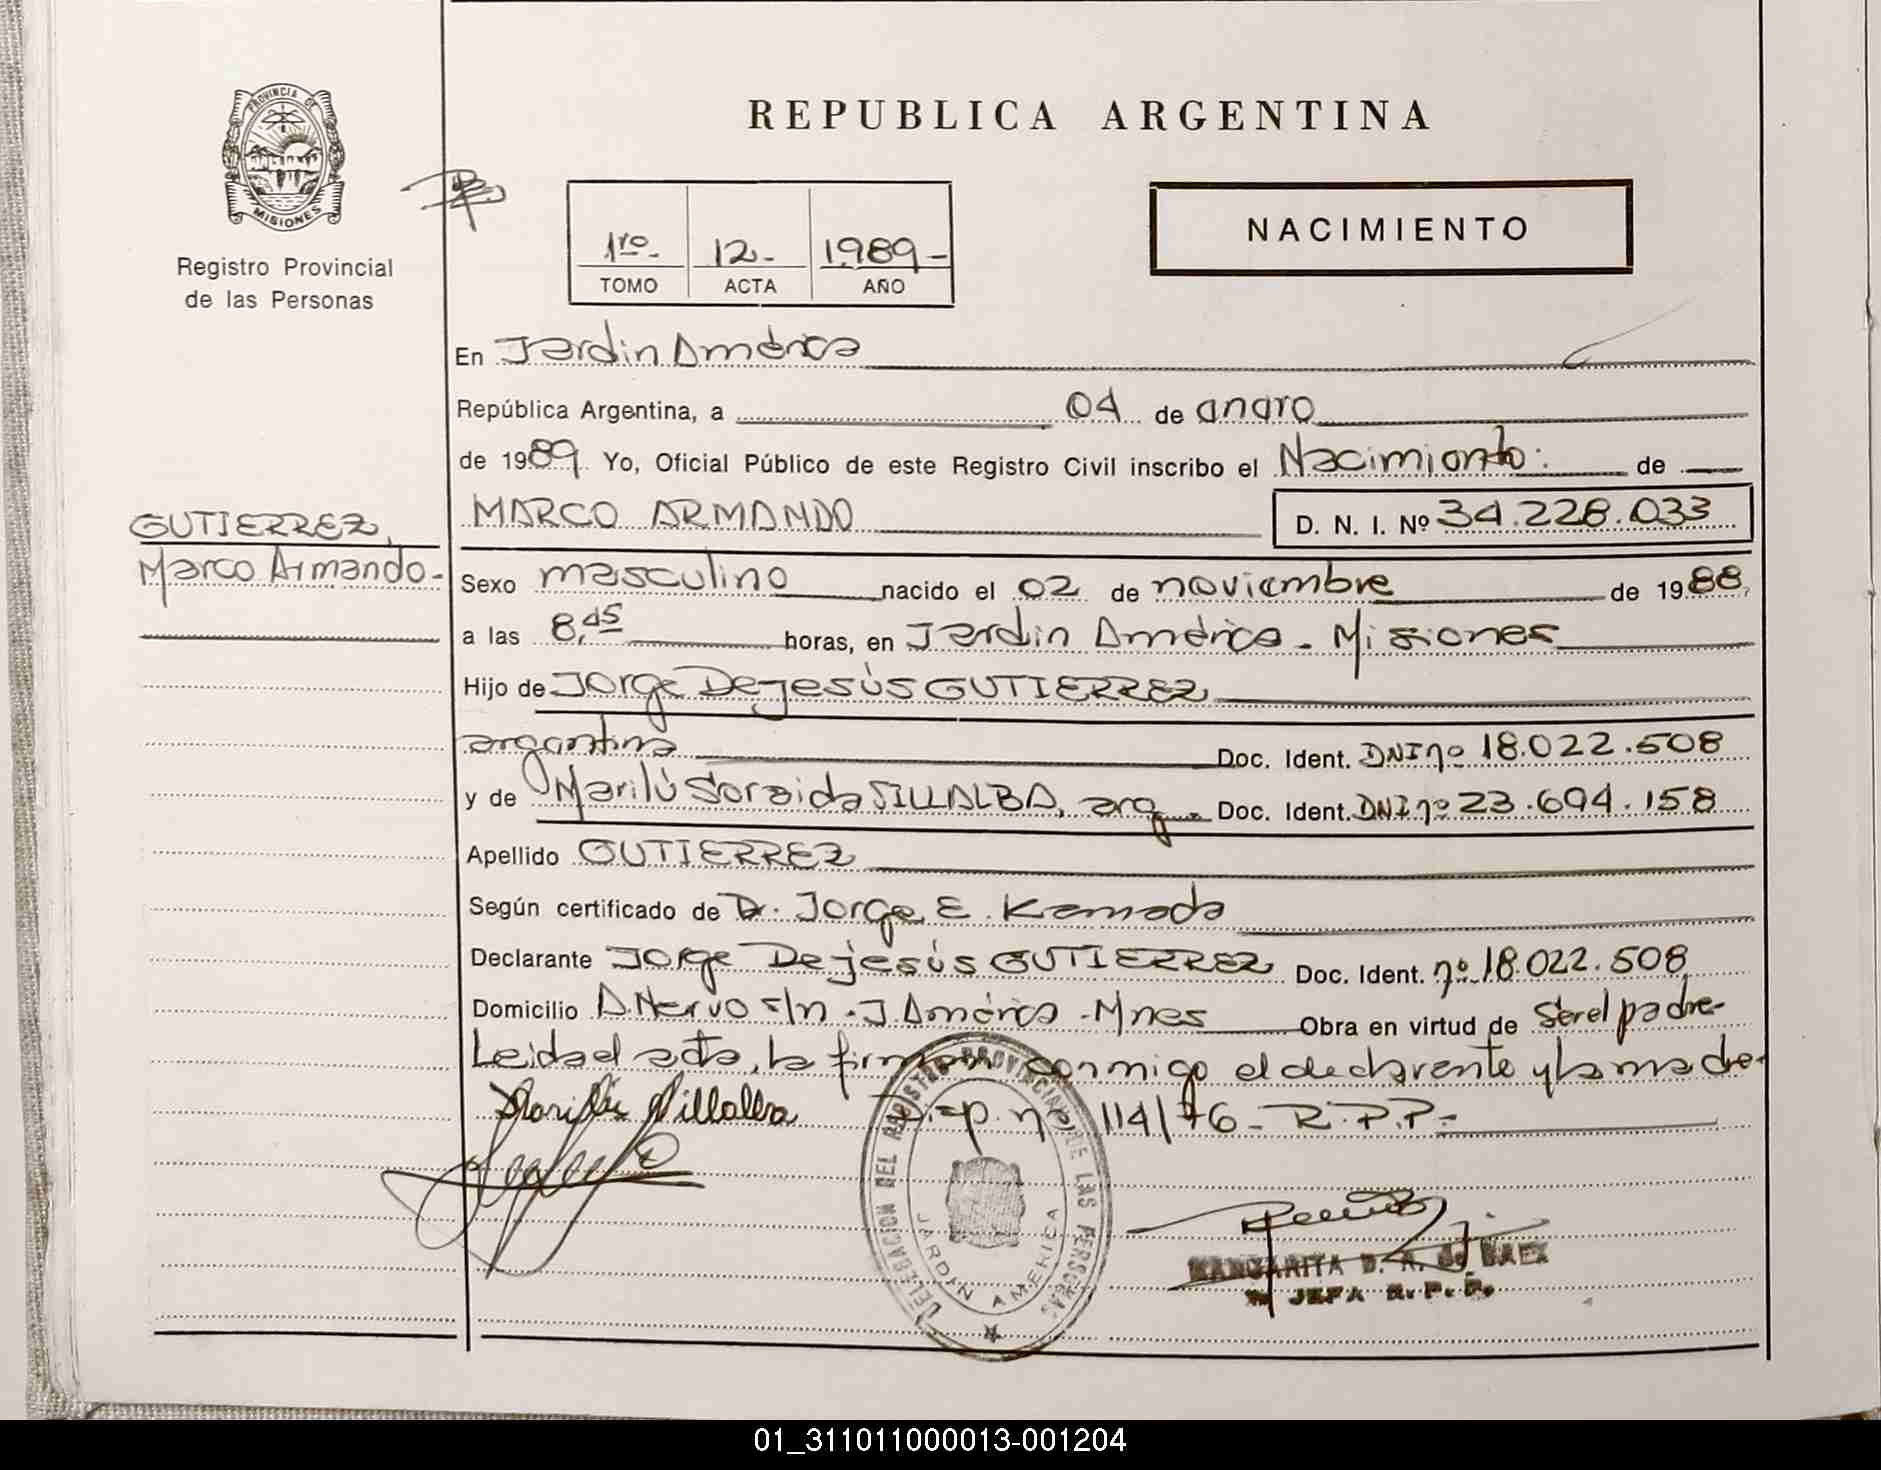 PROVINCIA DE MISIONES
Registro Provincial
de las Personas
REPUBLICA ARGENTINA
NACIMIENTO
1ro- 12- 1989-
TOMO ACTA AÑO
En Jardin América
República Argentina, a 04 de enero
de 1989 Yo, Oficial Público de este Registro Civil inscribo el Nacimiento: de
GUTIERREZ,
Marco Armando-
MARCO ARMANDO D. N. I. Nº 34.228.033
Sexo masculino nacido el 02 de noviembre de 1988,
a las 8,45 horas, en Jardin América - Misiones
Hijo de Jorge Dejesús GUTIERREZ
argentina Doc. Ident. DNI nº 18.022.508
y de Marilú Soraida VILLALBA, arg. Doc. Ident. DNI nº 23.694.158
Apellido GUTIERREZ
Según certificado de Dr. Jorge E. Kamada
Declarante Jorge Dejesús GUTIERREZ Doc. Ident. nº 18.022.508
Domicilio A. Nervo s/n - J. América - Mnes Obra en virtud de ser el padre-
Leida el acta, la firman conmigo el declarente y la madre-
Marilú Villalba Disp. nº 114/76- R.P.P.-
DELEGACION DEL REGISTRO PROVINCIAL DE LAS PERSONAS
JARDIN AMERICA
MARGARITA D. R. de BAEZ
JEFA R. P. P.
01_311011000013-001204